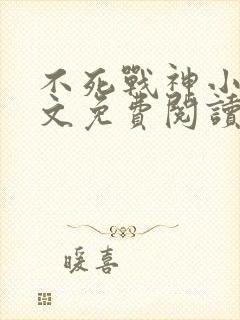 不死戰神小
文免費閱讀
暖喜